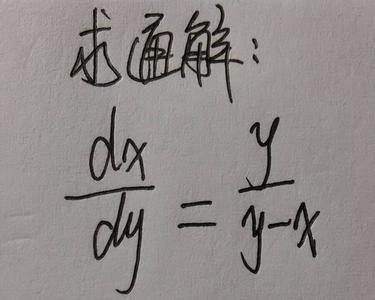 求通解:
dx/dy = y/(y-x)